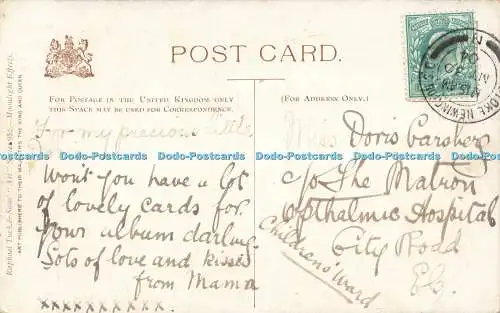 POST CARD.
FOR POSTAGE IN THE UNITED KINGDOM ONLY
THIS SPACE MAY BE USED FOR CORRESPONDENCE.
(FOR ADDRESS ONLY.)
For my precious little
Wont you have a lot
of lovely cards for
your album darling
Lots of love and kisses
from Mama
x x x x x x x x x x
Miss Doris Garsberg
c/o The Matron
Opthalmic Hospital
City Road
E.C.
Childrens' Ward
Raphael Tuck & Sons'
Moonlight Effects.
ART PUBLISHERS TO THEIR MAJESTIES THE KING AND QUEEN
Dodo-Postcards Dodo-Postcards Dodo-Postcards Dodo-Postcards
Dodo-Postcards Dodo-Postcards Dodo-Postcards Dodo-Postcards